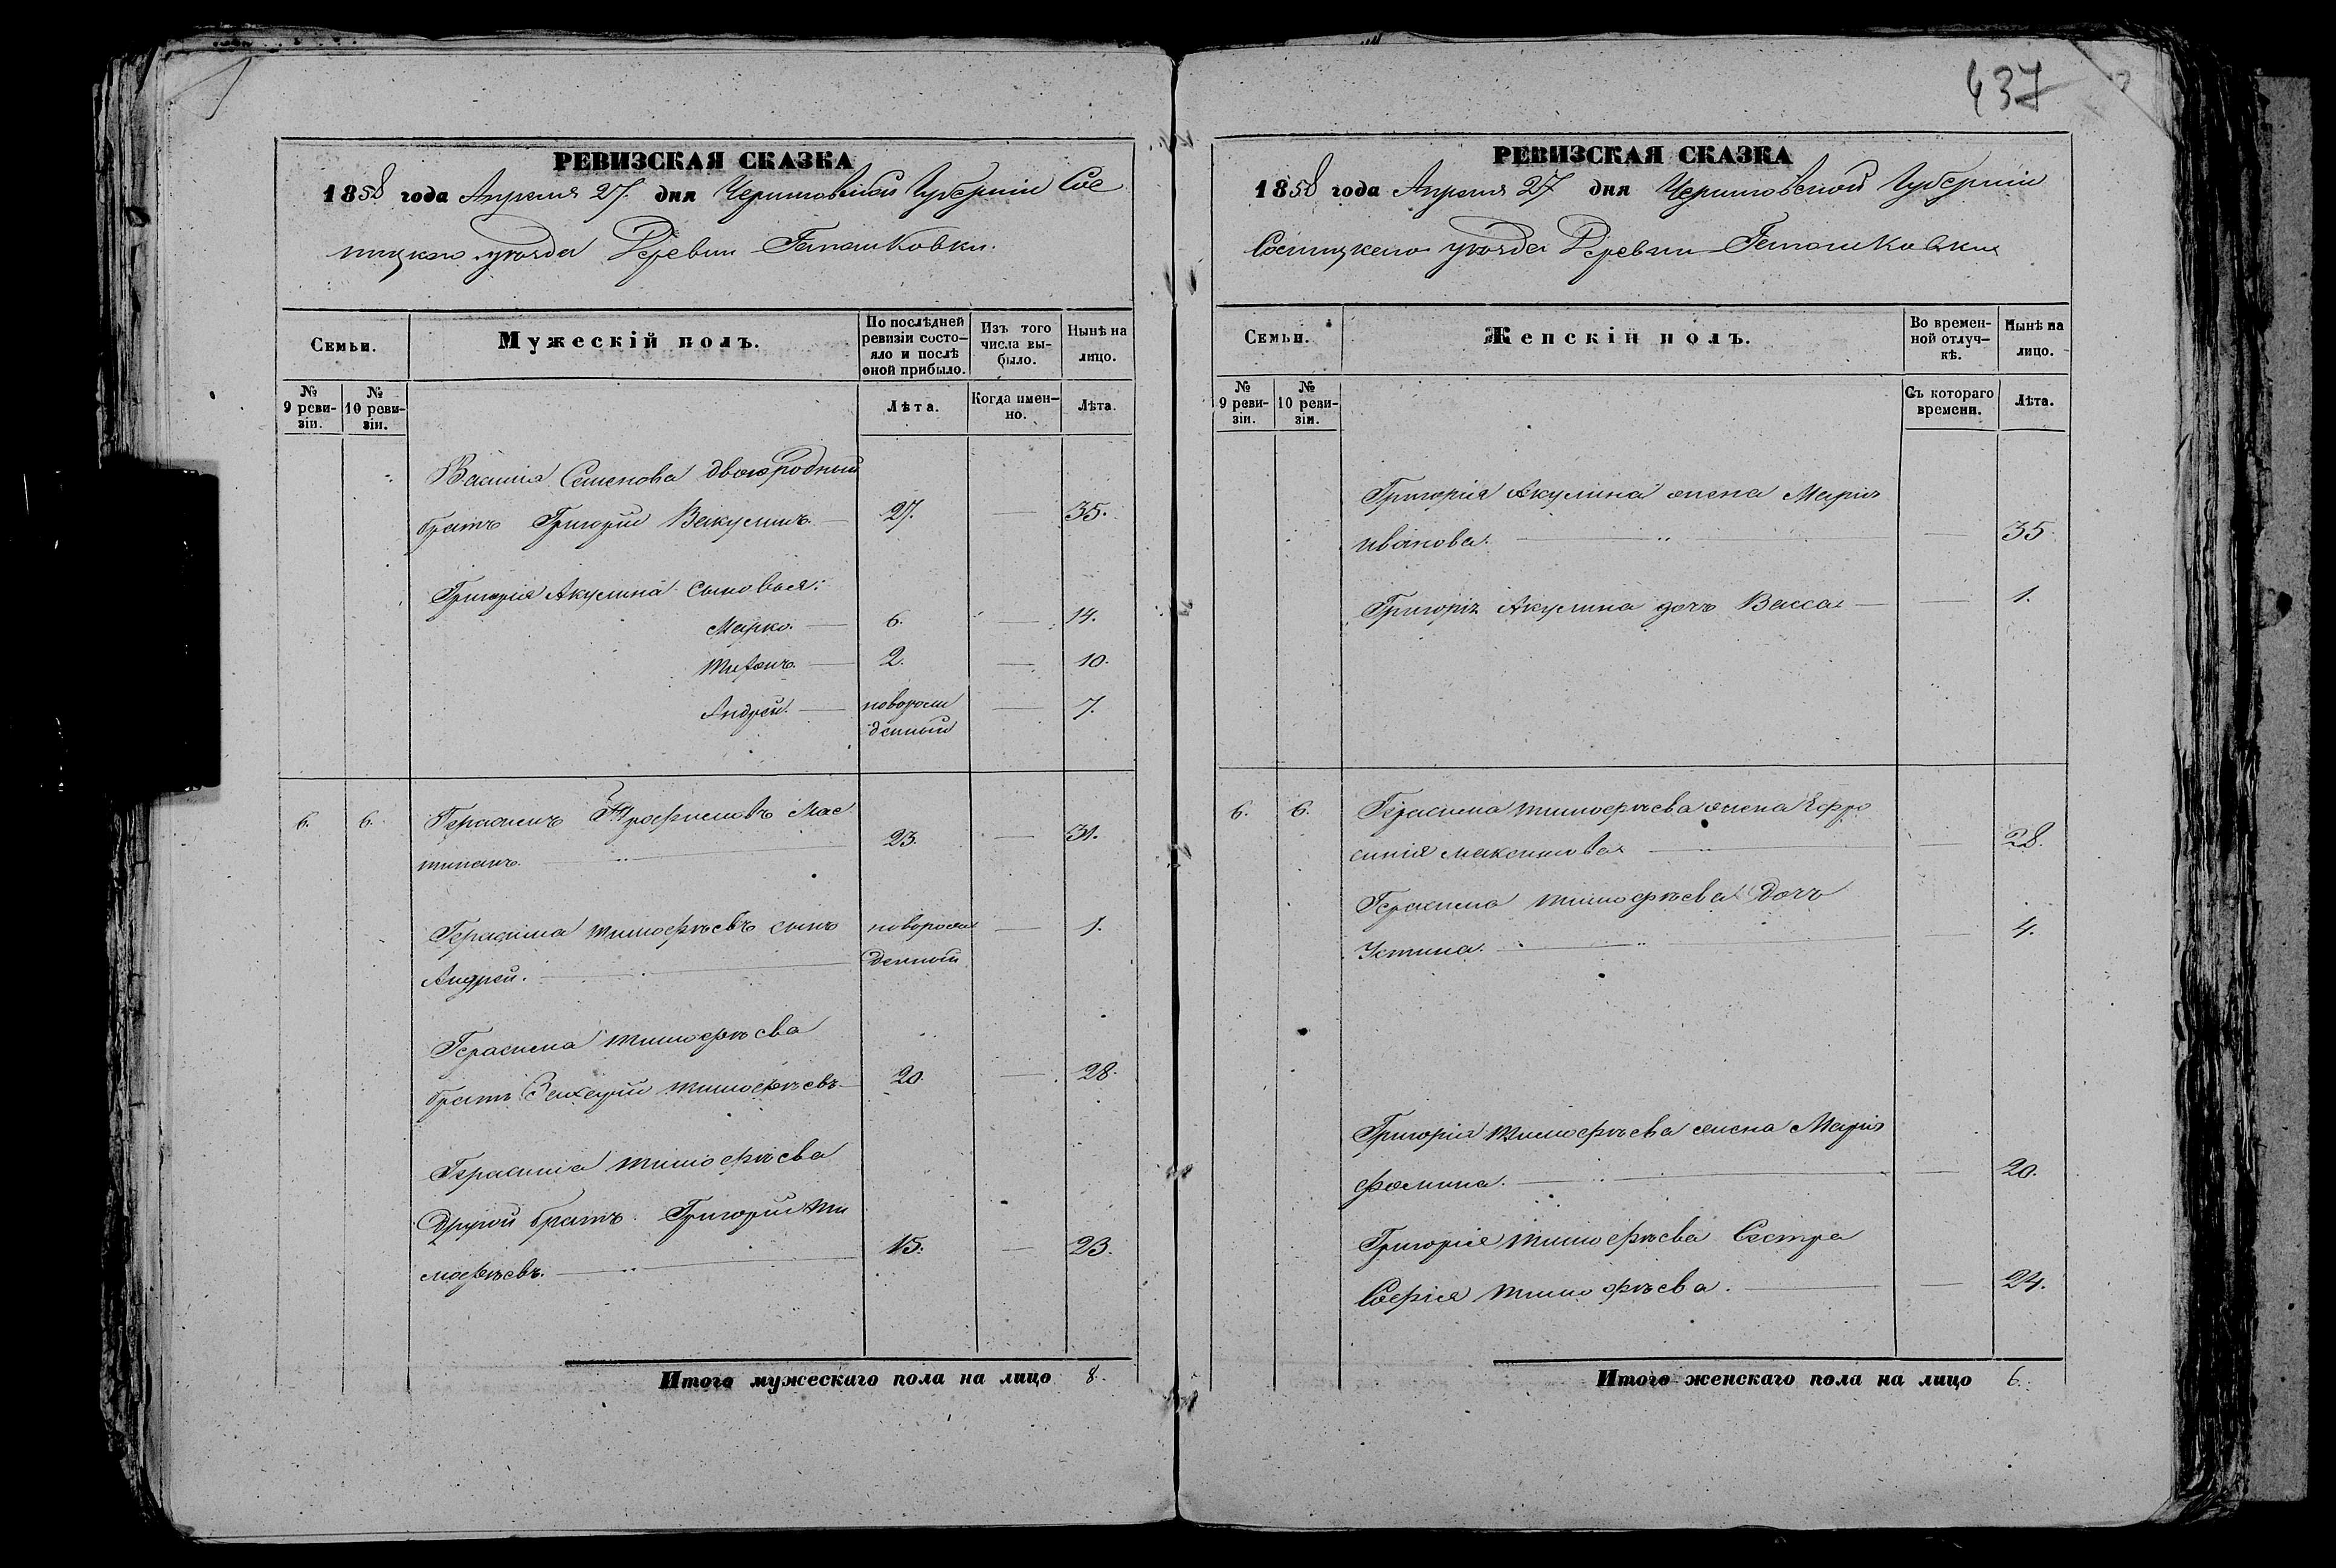 437
РЕВИЗСКАЯ СКАЗКА
1858 года Апреля 27. дня Черниговской Губернiи Сос
ницкого уѣзда Деревни Гапашковки.
Семьи.
Мужескiй полъ.
По послѣдней
ревизiи состо-
яло и послѣ
оной прибыло.
Изъ того
числа вы-
было.
Нынѣ на
лицо.
№
9 реви-
зiи.
№
10 реви-
зiи.
Лѣта.
Когда имен-
но.
Лѣта.
Василiя Семенова двоюродный
братъ Григорiй Вакулинъ. 27. 35.
Григорiя Акулина сыновья:
Марко. 6. 14.
2. 10.
Андрей. новорож 7.
денный
6. 6. Герасимъ
23. 31.
Герасима Тимофѣевъ сынъ новорож 1.
Андрей. денный
Герасима Тимофѣева
братъ Захарiй Тимофѣевъ 20. 28.
Герасима Тимофѣева
Другой братъ Григорiй Ти
мофѣевъ. 15. 23.
Итого мужескаго пола на лицо 8.
РЕВИЗСКАЯ СКАЗКА
1858 года Апреля 27 дня Черниговской Губернiи
Сосницкого уѣзда Деревни Гапашковки
Семьи.
Женскiй полъ.
Во времен-
ной отлуч-
кѣ.
Нынѣ на
лицо.
№
9 реви-
зiи.
№
10 реви-
зiи.
Съ котораго
времени.
Лѣта.
Григорiя Акулина жена Марiя
иванова. 35
Григорiя Акулина дочь Васса 1.
6. 6. Герасима Тимофѣева жена Ефро
синiя Максимова 28.
Герасима Тимофѣева Дочь
Устина. 4.
Григорiя Тимофѣева жена Марiя
фомина. 20.
Григорiя Тимофѣева Сестра
Софiя Тимофѣева. 24.
Итого женскаго пола на лицо 6.